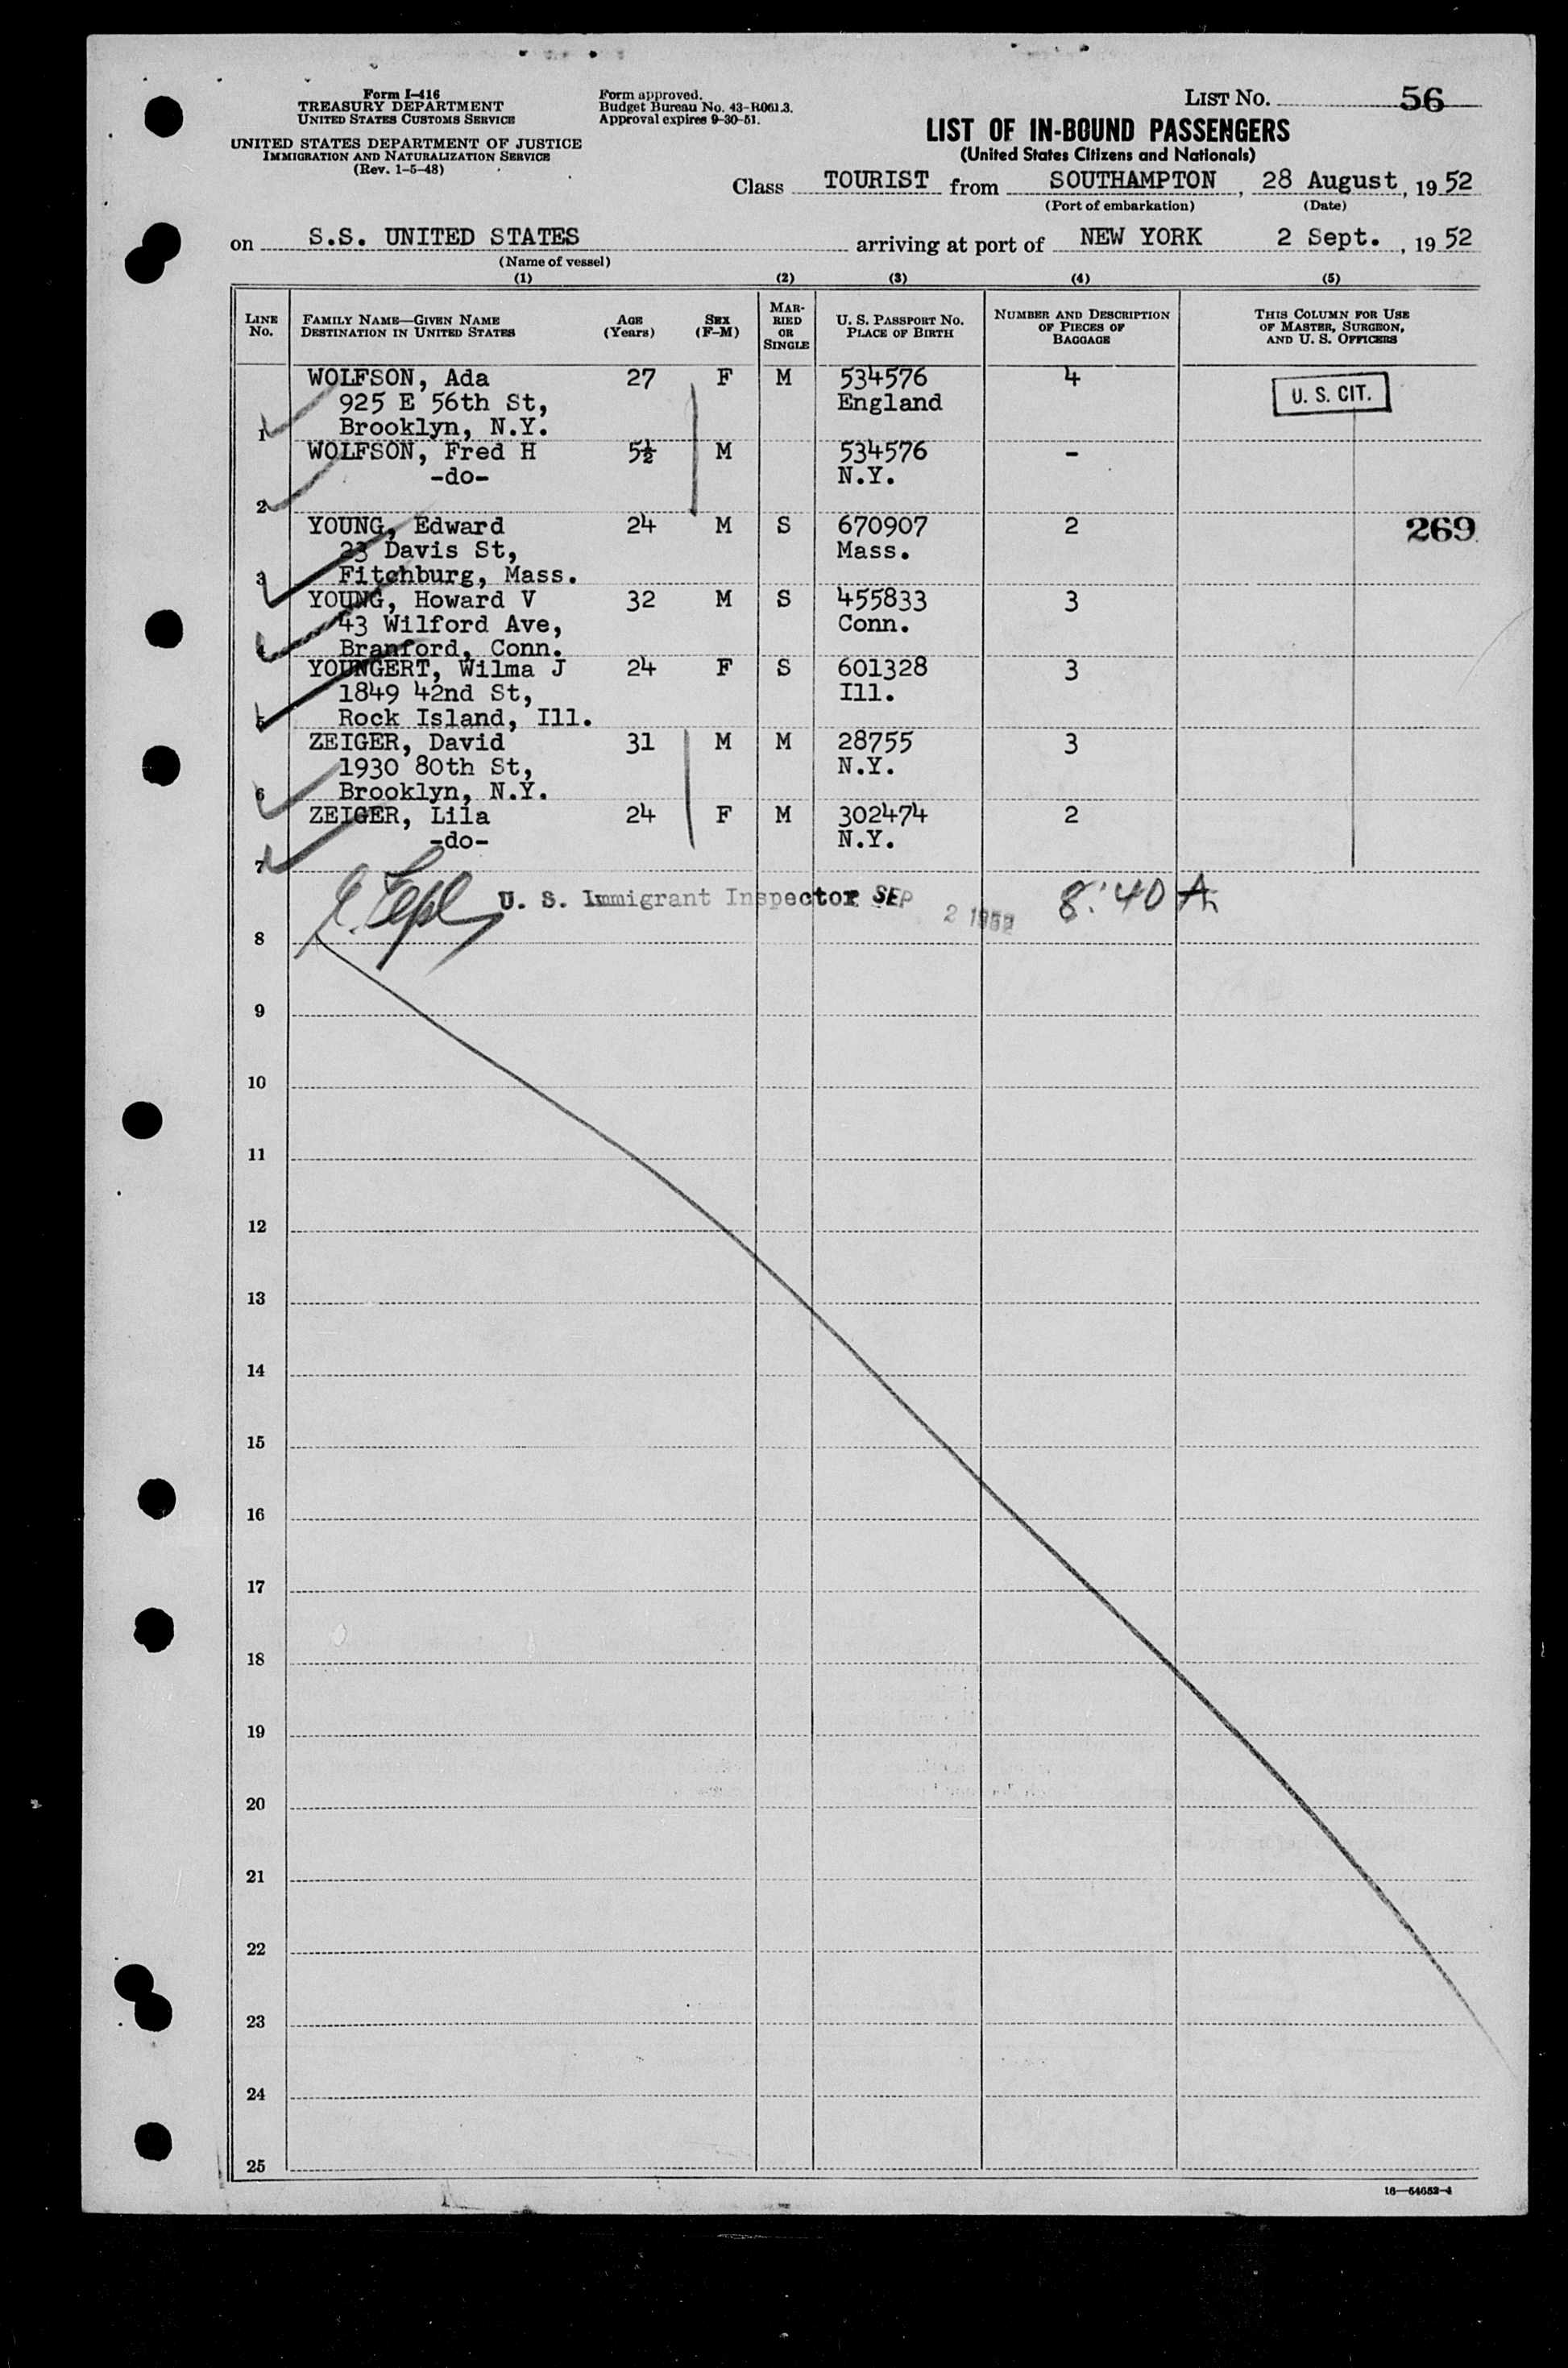 Form I-416
TREASURY DEPARTMENT
UNITED STATES CUSTOMS SERVICE
UNITED STATES DEPARTMENT OF JUSTICE
IMMIGRATION AND NATURALIZATION SERVICE
(Rev. 1-5-48)
Form approved.
Budget Bureau No. 43-R061.3.
Approval expires 9-30-51.
LIST No. 56
LIST OF IN-BOUND PASSENGERS
(United States Citizens and Nationals)
Class TOURIST from SOUTHAMPTON, 28 August, 1952
(Port of embarkation) (Date)
on S.S. UNITED STATES arriving at port of NEW YORK 2 Sept., 1952
(Name of vessel)
(1) (2) (3) (4) (5)
LINE No. FAMILY NAME—GIVEN NAME DESTINATION IN UNITED STATES AGE (Years) SEX (F-M) MARRIED OR SINGLE U. S. PASSPORT No. PLACE OF BIRTH NUMBER AND DESCRIPTION OF PIECES OF BAGGAGE THIS COLUMN FOR USE OF MASTER, SURGEON, AND U. S. OFFICERS
WOLFSON, Ada 27 F M 534576 4
925 E 56th St, England U. S. CIT.
1 Brooklyn, N.Y.
WOLFSON, Fred H 5½ M 534576 -
-do- N.Y.
2
YOUNG, Edward 24 M S 670907 2 269
23 Davis St, Mass.
3 Fitchburg, Mass.
YOUNG, Howard V 32 M S 455833 3
43 Wilford Ave, Conn.
Branford, Conn.
YOUNGERT, Wilma J 24 F S 601328 3
1849 42nd St, Ill.
5 Rock Island, Ill.
ZEIGER, David 31 M M 28755 3
1930 80th St, N.Y.
6 Brooklyn, N.Y.
ZEIGER, Lila 24 F M 302474 2
-do- N.Y.
7
U. S. Immigrant Inspector SEP 2 1952 8:40 A
8
9
10
11
12
13
14
15
16
17
18
19
20
21
22
23
24
25
16—54652-4